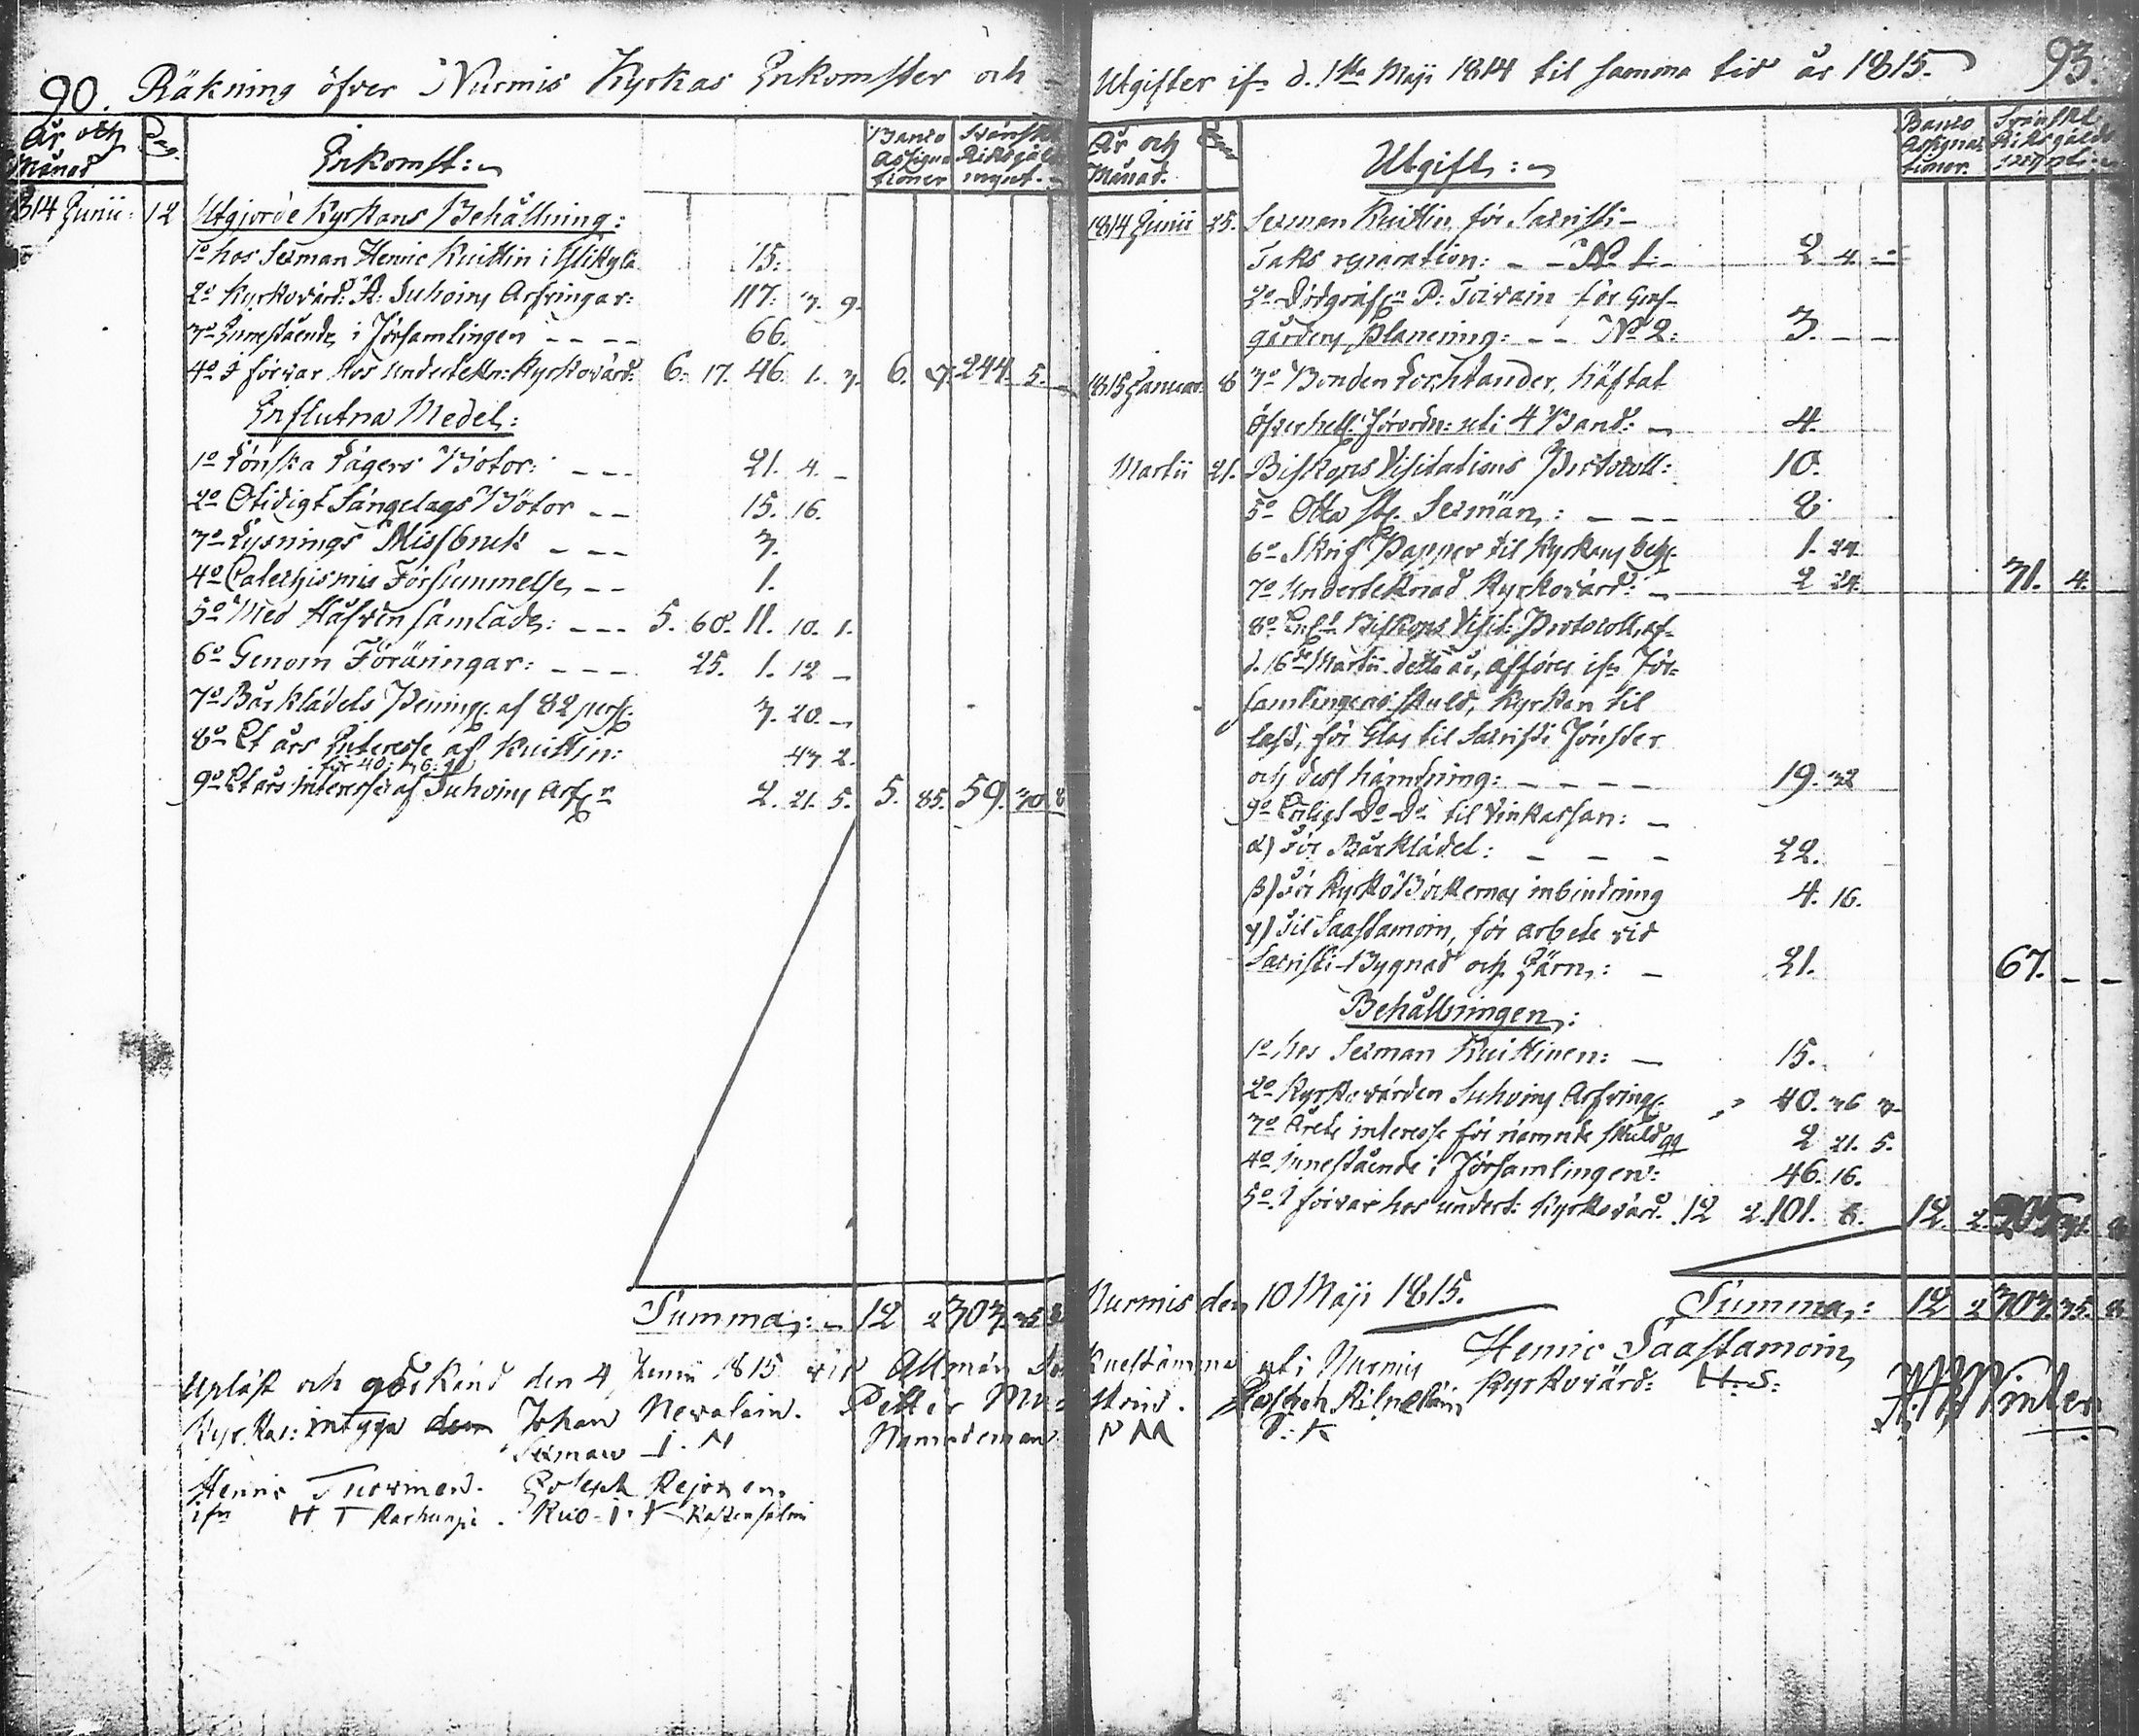 90. Räkning öfver Nurmis Kyrkas Inkomster och
År och Månad Dag. Inkomst: Banco Assignationer Svänskt Riksgälds mynt.
1814 Junii: 12 Utgjorde Kyrkans Behållning:
1o hos Sexman Henric Kuittin i Ylikylä 15:
2o Kyrkovärd: A: Juhoins Arfvingar: 117: 3. 9.
3o Innestående i Församlingen - - - - 66.
4o I förvar hos undertekn: Kyrkovärd: 6. 17. 46. 1. 3. 6. 17. 244. 5. -
Influtna Medel:
1o Lönska Lägers Böter: - - - 21. 4. -
2o Otidigt Sängelags Böter - - 15. 16.
3o Lysnings Missbruk - - - 3.
4o Catechismis Försummelse - - 1.
5o Med Håfven samlade: - - - 5. 60. 11. 10. 1.
6o Genom Föräringar: - - - 25. 1. 12 -
7o Bårklädets Penning: af 82 pers: 3. 20. -
8o Et års Interesse af Kuittin: 43. 2.
för 40: 36: 9
9o Et års interesse af Juhoins Arf: 2. 21. 5. 5. 85. 59. 30. 8
Summa: 12 2 303. 35 8
Upläst och godkänd den 4 Junii 1815 vid Allmän Soknestämma uti Nurmis
Kyrka: intyga Johan Nevalain. Petter Mustoin.
Sexman I. N Nämndeman P M
Henric Turuinen. Joseph Rejonen
ifrn H T Karhunpä. Kuo - I. K
Utgifter ifrn d. 1sta Maji 1814 til samma tid år 1815. 93.
År och Månad. Utgift: Banco Assignationer. Svänskt Riksgälds mynt:
1814 Junii 25. Sexman Kuittin för Sacristi-
Taks reparation: - - No 1: 2 4. -
2o Dödgräf: P: Toivain för Graf-
gårdens planering: - - No 2: 3. - -
1815 Januar. 8 3o Bonden Lochtander, häftat
Öfverhetl: Förordn: uti 4 Band: - 4.
Martii 21. Biskops Visitations Protocoll: 10.
5o Otta st: Sexmän: - - - 8
6o Skrif Papper til Kyrkans beh: 1. 24
7o Underteknad Kyrkovärd: - 2 24. 31. 4.
8o Enl: Biskops Visit: Protocoll, af
d. 16de Martii detta år, afföres ifrn För-
samlingens skuld, Kyrkan til
last, för Glas til Sacristi Fönster
och dess hämtning: - - - - 19. 32
9o Enligt Do Do til Vinkassan: -
α) För Bårklädet: - - - 22.
β) För Kyrko Böckernas inbindning 4. 16.
γ) Til Saastamoin, för arbete vid
Sacristi-Bygnad och Järn: - 21. 67. - -
Behållningen:
1o hos Sexman Kuittinen: - 15.
2o Kyrkovärden Juhoins Arfving: 40. 36 9
3o Årets interesse för nämnde skuld 2 21. 5.
4o Innestående i Församlingen: 46. 16.
5o I förvar hos undert: Kyrkovärd. 12 2. 101. 6. 12. 2. 205 31. 8
Nurmis den 10 Maji 1815. Summa: 12 2 303. 35. 8
Henric Saastamoin
Kyrkovärd: H. S: